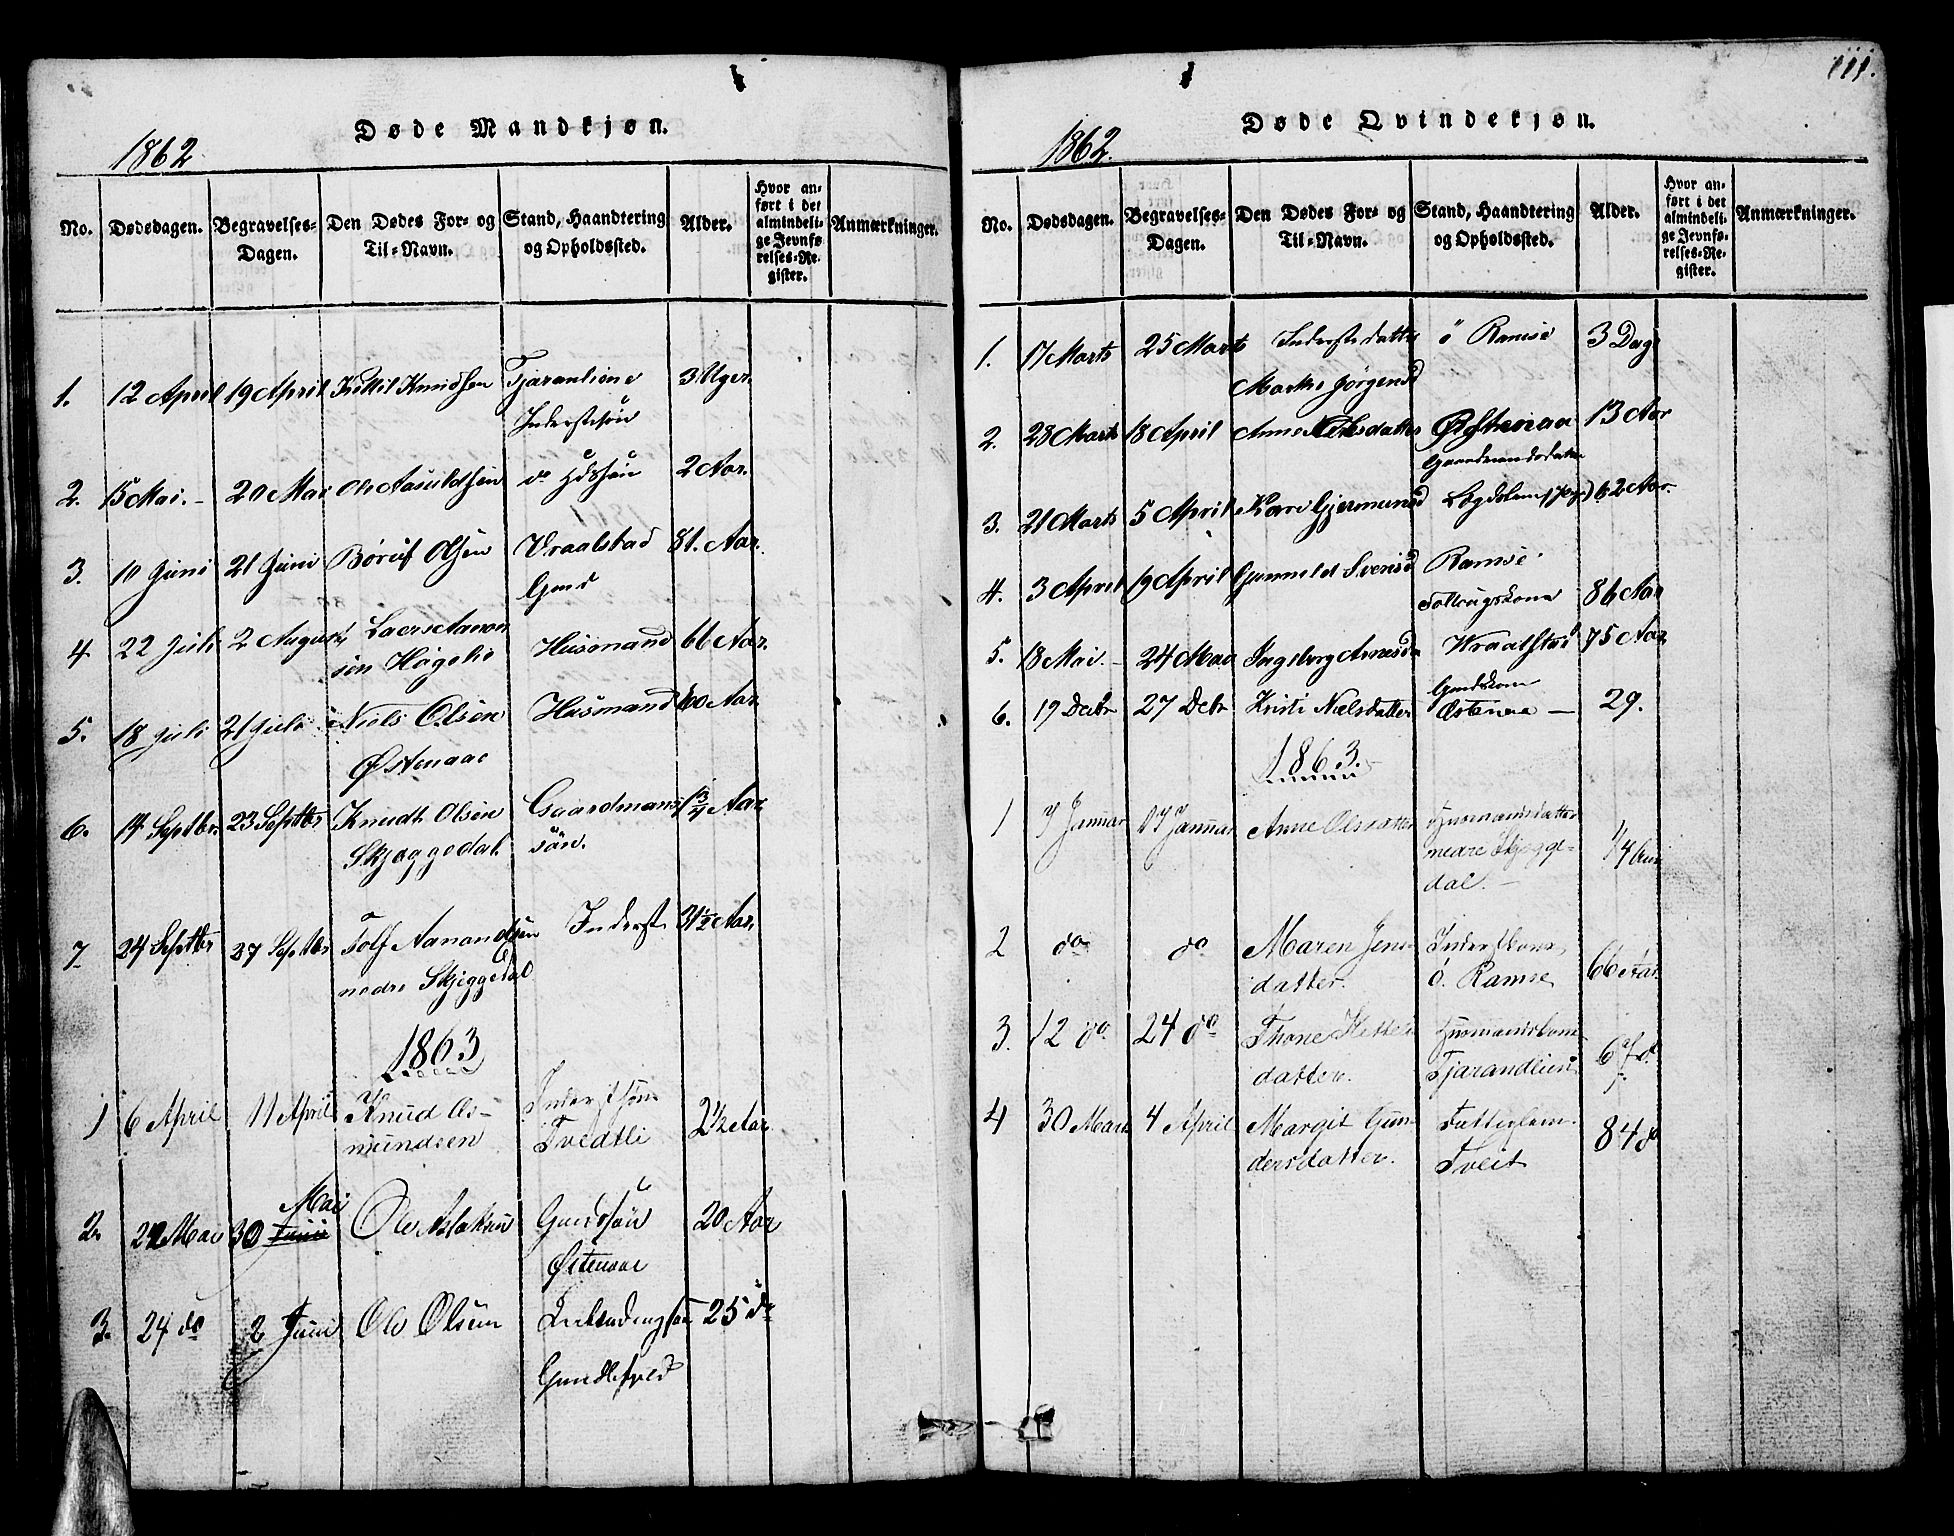 Døde Mandkjøn.
1862
No. Dødsdagen. Begravelses-Dagen. Den Dødes For- og Til-Navn. Stand, Haandtering og Opholdssted. Alder. Hvor anført i det almindelige Jevnførelses-Register. Anmærkninger.
1. 12 April 19 April Kittil Knudsen Tjarantiene 3 Uger.
Inderstesön
2. 15 Mai. - 20 Mai Ole Aasuldsen do 2 Aar.
3. 10 Juni 21 Juni Børuf Olsen Vraalstad 81. Aar.
Gmd
4. 22 Juli 2 August Laers Aanon
sen Högelie Husmand 66 Aar.
5. 18 Juli 21 Juli Niels Olsen Husmand 60 Aar
Østenaae
6. 14 Septbr. 23 Septbr Knudt Olsen Gaardmans 1 3/4 Aar
Skjeggedal sön.
7 24 Septbr 27 Septbr Tolf Aanondsen Inderst 31 1/2 Aar.
nedre Skjeggedal
1863
1 6 April 11 April Knud Os- Inderstsøn
mundsen Tvedtli 2 1/2 Aar
Mai
2. 22 Mai 30 Juni Ole Aslaksen Gmdssön 20 Aar
Østenaae
3. 24 do 2 Juni Ole Olsen 25 do
111.
Døde Qvindekjøn.
1862.
No. Dødsdagen. Begravelses-Dagen. Den Dødes For- og Til-Navn. Stand, Haandtering og Opholdssted. Alder. Hvor anført i det almindelige Jevnførelses-Register. Anmærkninger.
1. 17 Marts 25 Marts Inderstedatter ö Ramse 3 Dage
Marthe Jörgensd
2. 28 Marts 18 April Anne Nilsdatter Østenaa 13 Aar
Gaardmandsdatter
3. 21 Marts 5 April Kari Gjermunsd Lægdslem 62 Aar.
4. 3 April 19 April Gunnild Svensd Ramse
Follougskone 86 Aar
5. 18 Mai. - 24 Mai Ingeborg Arnesda Vraalstad 75 Aar
Gmdskone
6. 19 Decbr 27 Debr Kristi Nælsdatter Østenaae - 29.
1863.
1 7 Januar 17 Januar Anne Olsdatter Husmandsdatter
nedre Skjegge- 1/4 Aar
dal. -
2 do do Maren Jens- Inderstkone,
datter. ö. Ramse 66 Aar.
3. 12 do 24 do Thone Kettels Husmandskone
datter. Tjarandlien 67 do
4 30 Mars 4 April Margit Gun- Fattiglem
dersdatter. Tveit 84 do